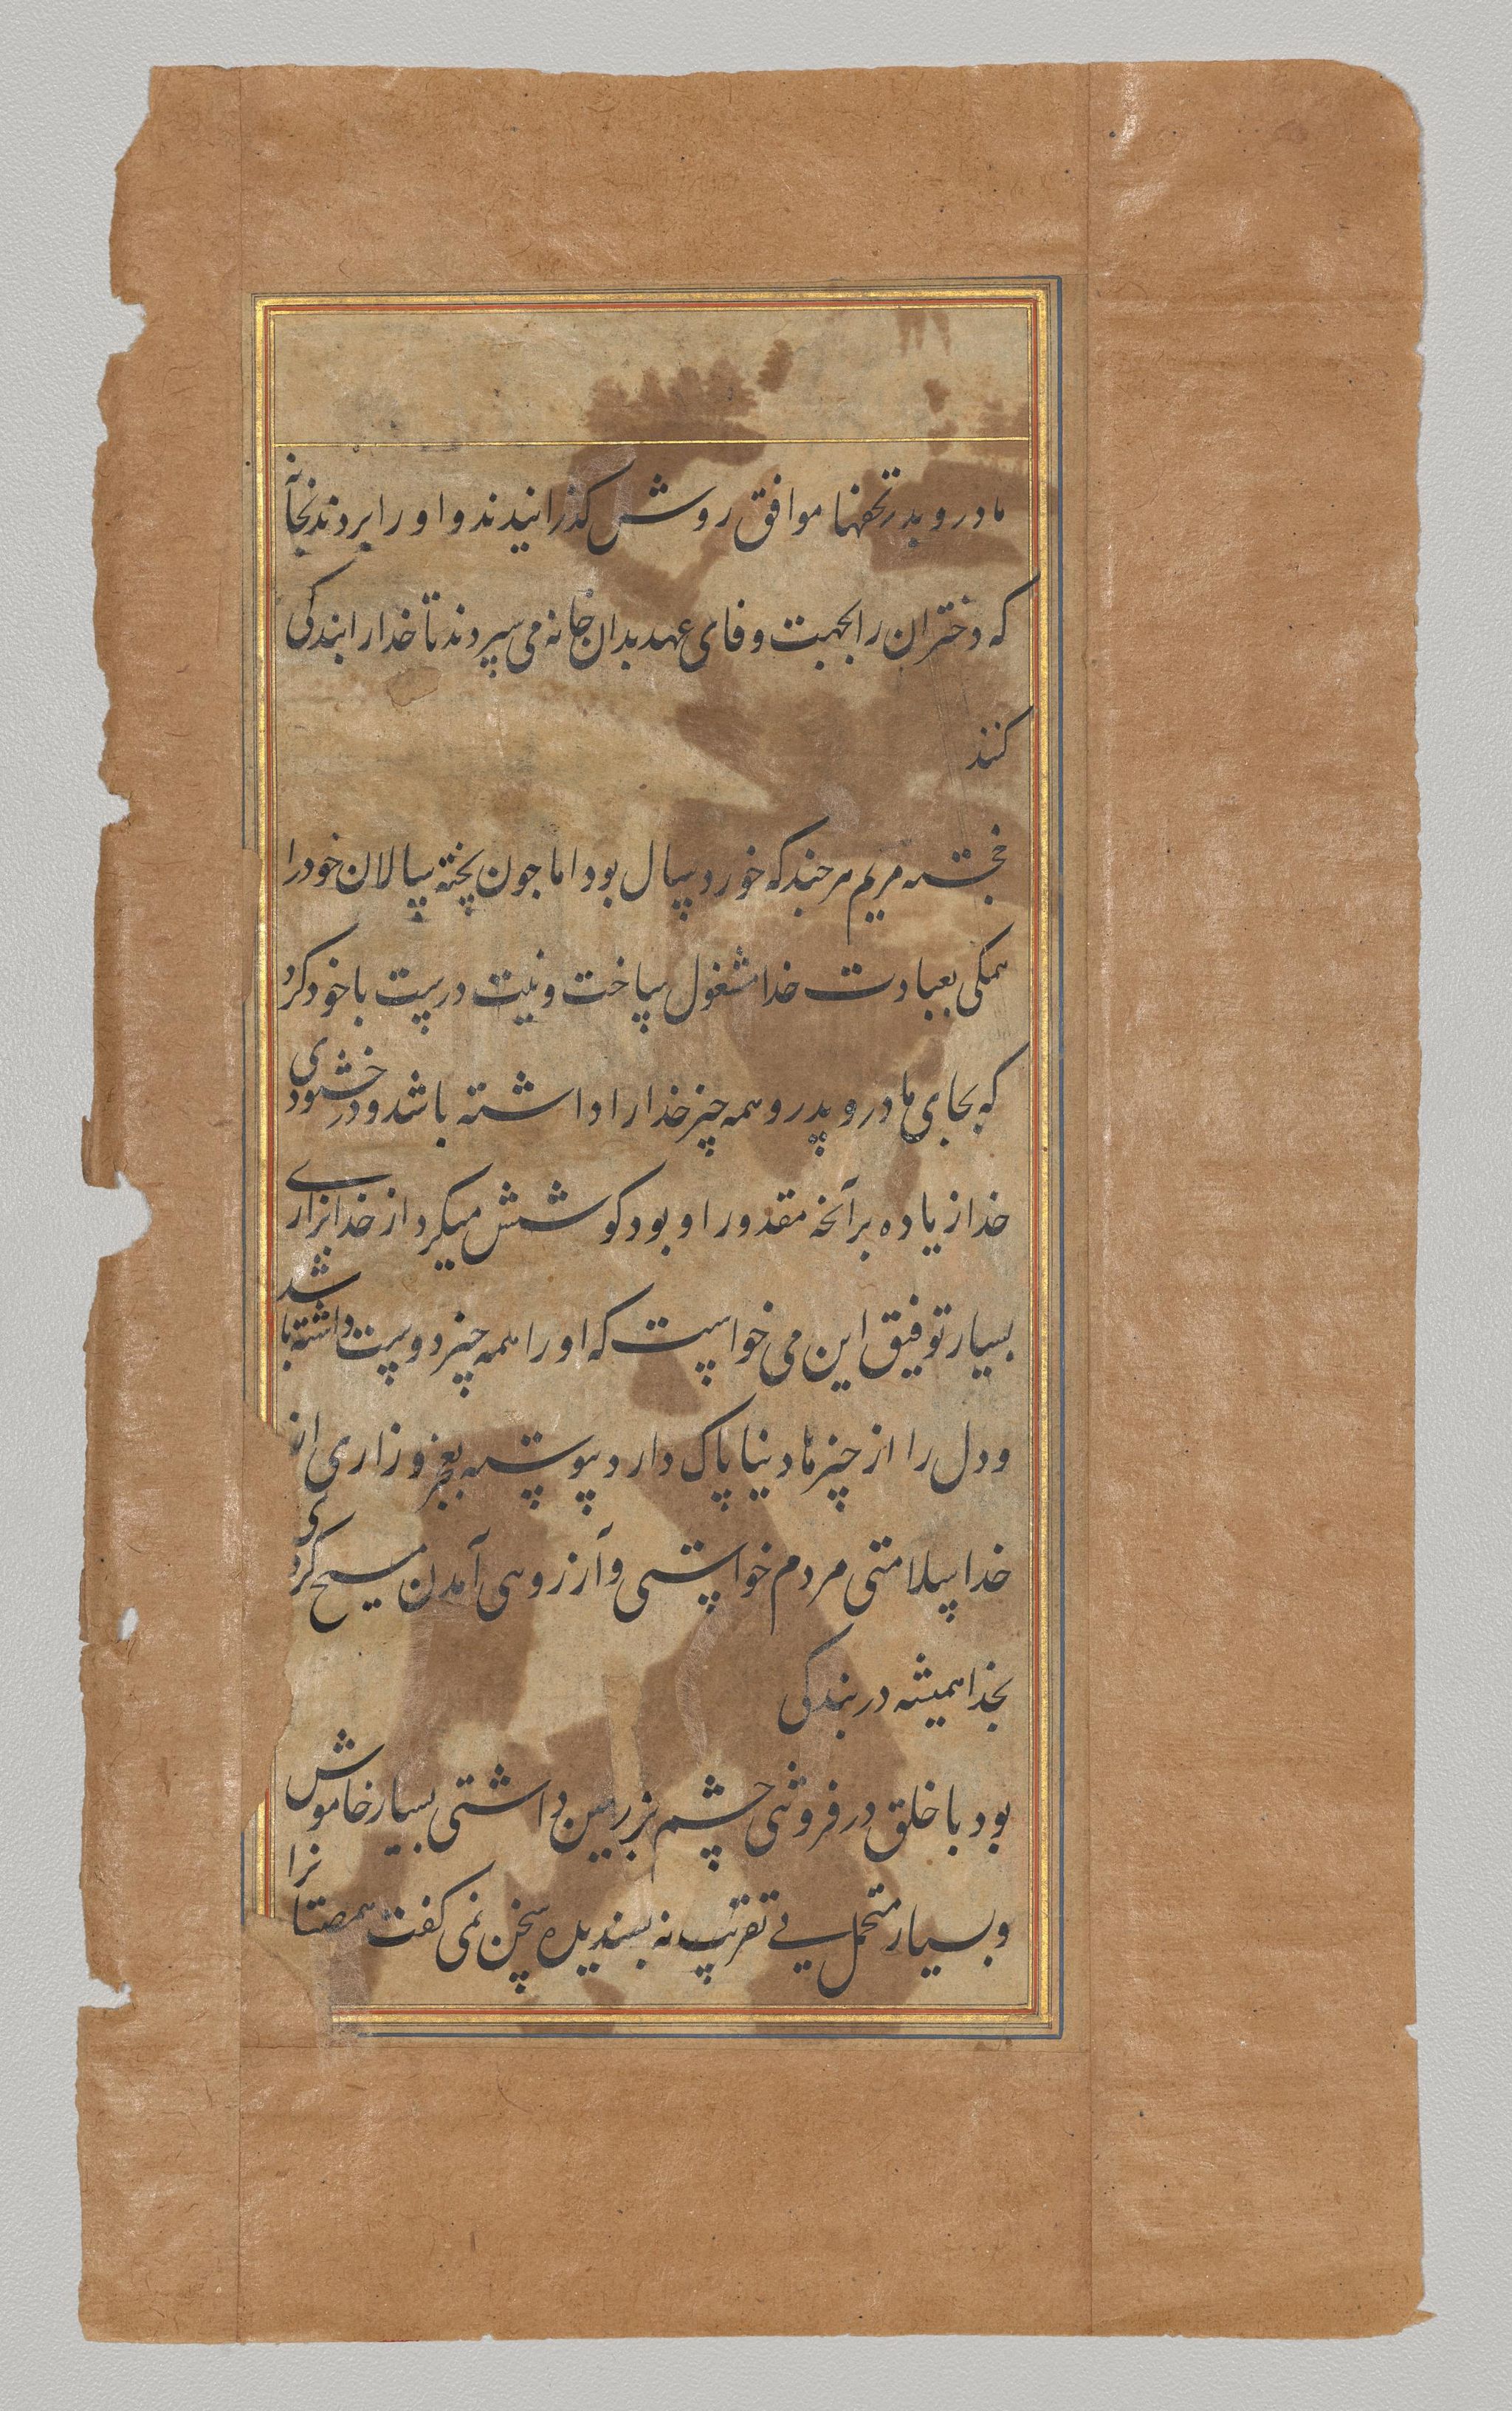 مادر و پدر تحفها موافق روش کذرانیدند و او را بردند بخانه
که دختران را بجهت وفای عهد بدان خانه می سپردند تا خدا را بندکی
کنند
خجسته مریم هر چند که خورد سال بود اما چون پخته سالان خود را
همکی بعبادت خدا مشغول ساخت و نیت درست با خود کرد
که بجای مادر و پدر و همه چیز خدا را داشته باشد و در خشنودی
خدا زیاده بر آنچه مقدور او بود کوشش میکرد از خدا بزاری
بسیار توفیق این می خواست که او را همه چیز دوست داشته باشد
و دل را از چیزها دنیا پاک دارد پیوسته بعجز و زاری از
خدا سلامتی مردم خواستی و آرزوهی آمدن مسیح کردی
بخدا همیشه در بندکی
بود با خلق در فروتنی چشم بزرمین داشتی بسیار خاموش
و بسیار متحمل بی تقریب نه پسندیده سخن نمی کفت همصنا نرا